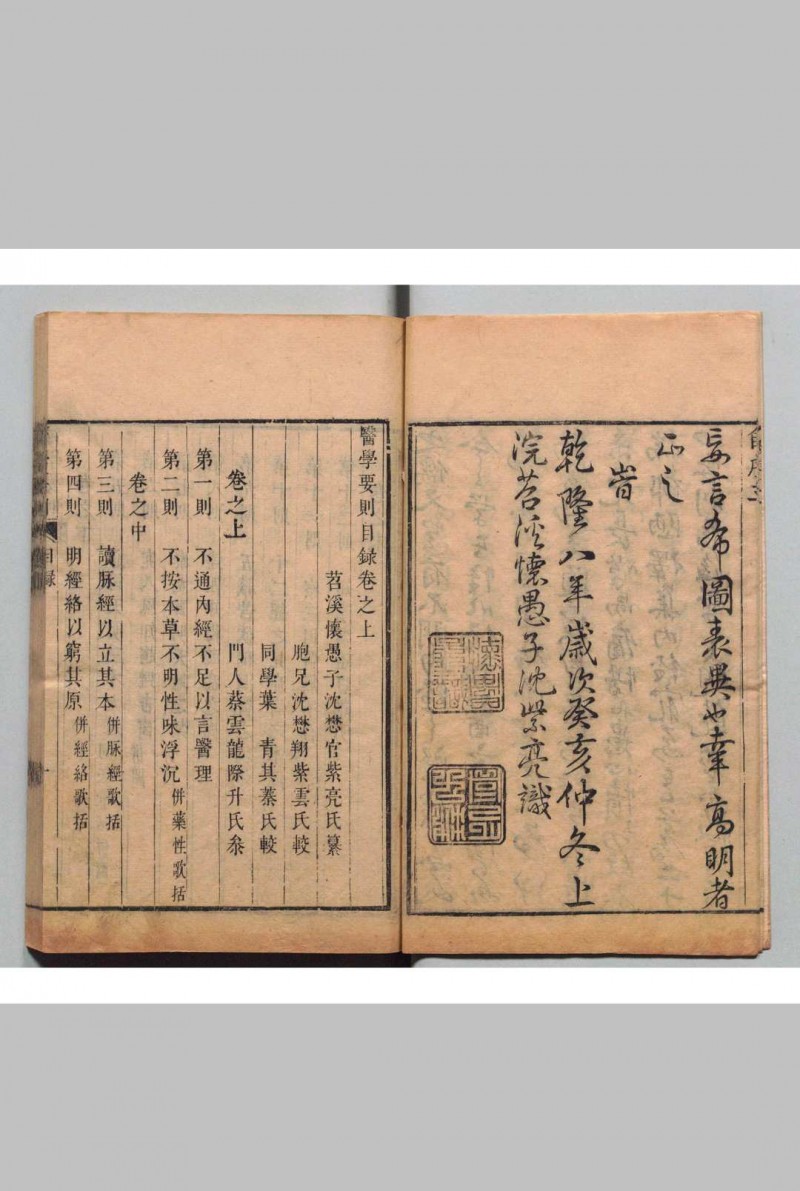 妄言希圖表異也幸 高明者
正之
旹
乾隆八年歲次癸亥仲冬上
浣苕溪懷愚子沈紫亮識
醫學要則目録卷之上
苕溪懷愚子沈懋官紫亮氏纂
胞兄沈懋翔紫雲氏較
同學葉 青其蓁氏較
門人蔡雲龍際升氏叅
卷之上
第一則 不通內經不足以言醫理
第二則 不按本草不明性味浮沉 併藥性歌括
卷之中
第三則 讀脉經以立其本 併脉經歌括
第四則 明經絡以窮其原 併經絡歌括
目録